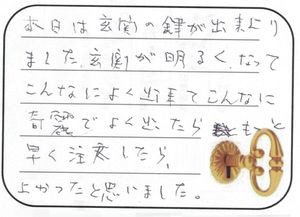 本日は玄関の鍵が出来上り
ました。玄関が明るくなって
こんなによく出来てこんなに
奇麗でよく出たら もっと
早く注文したら、
よかったと思いました。